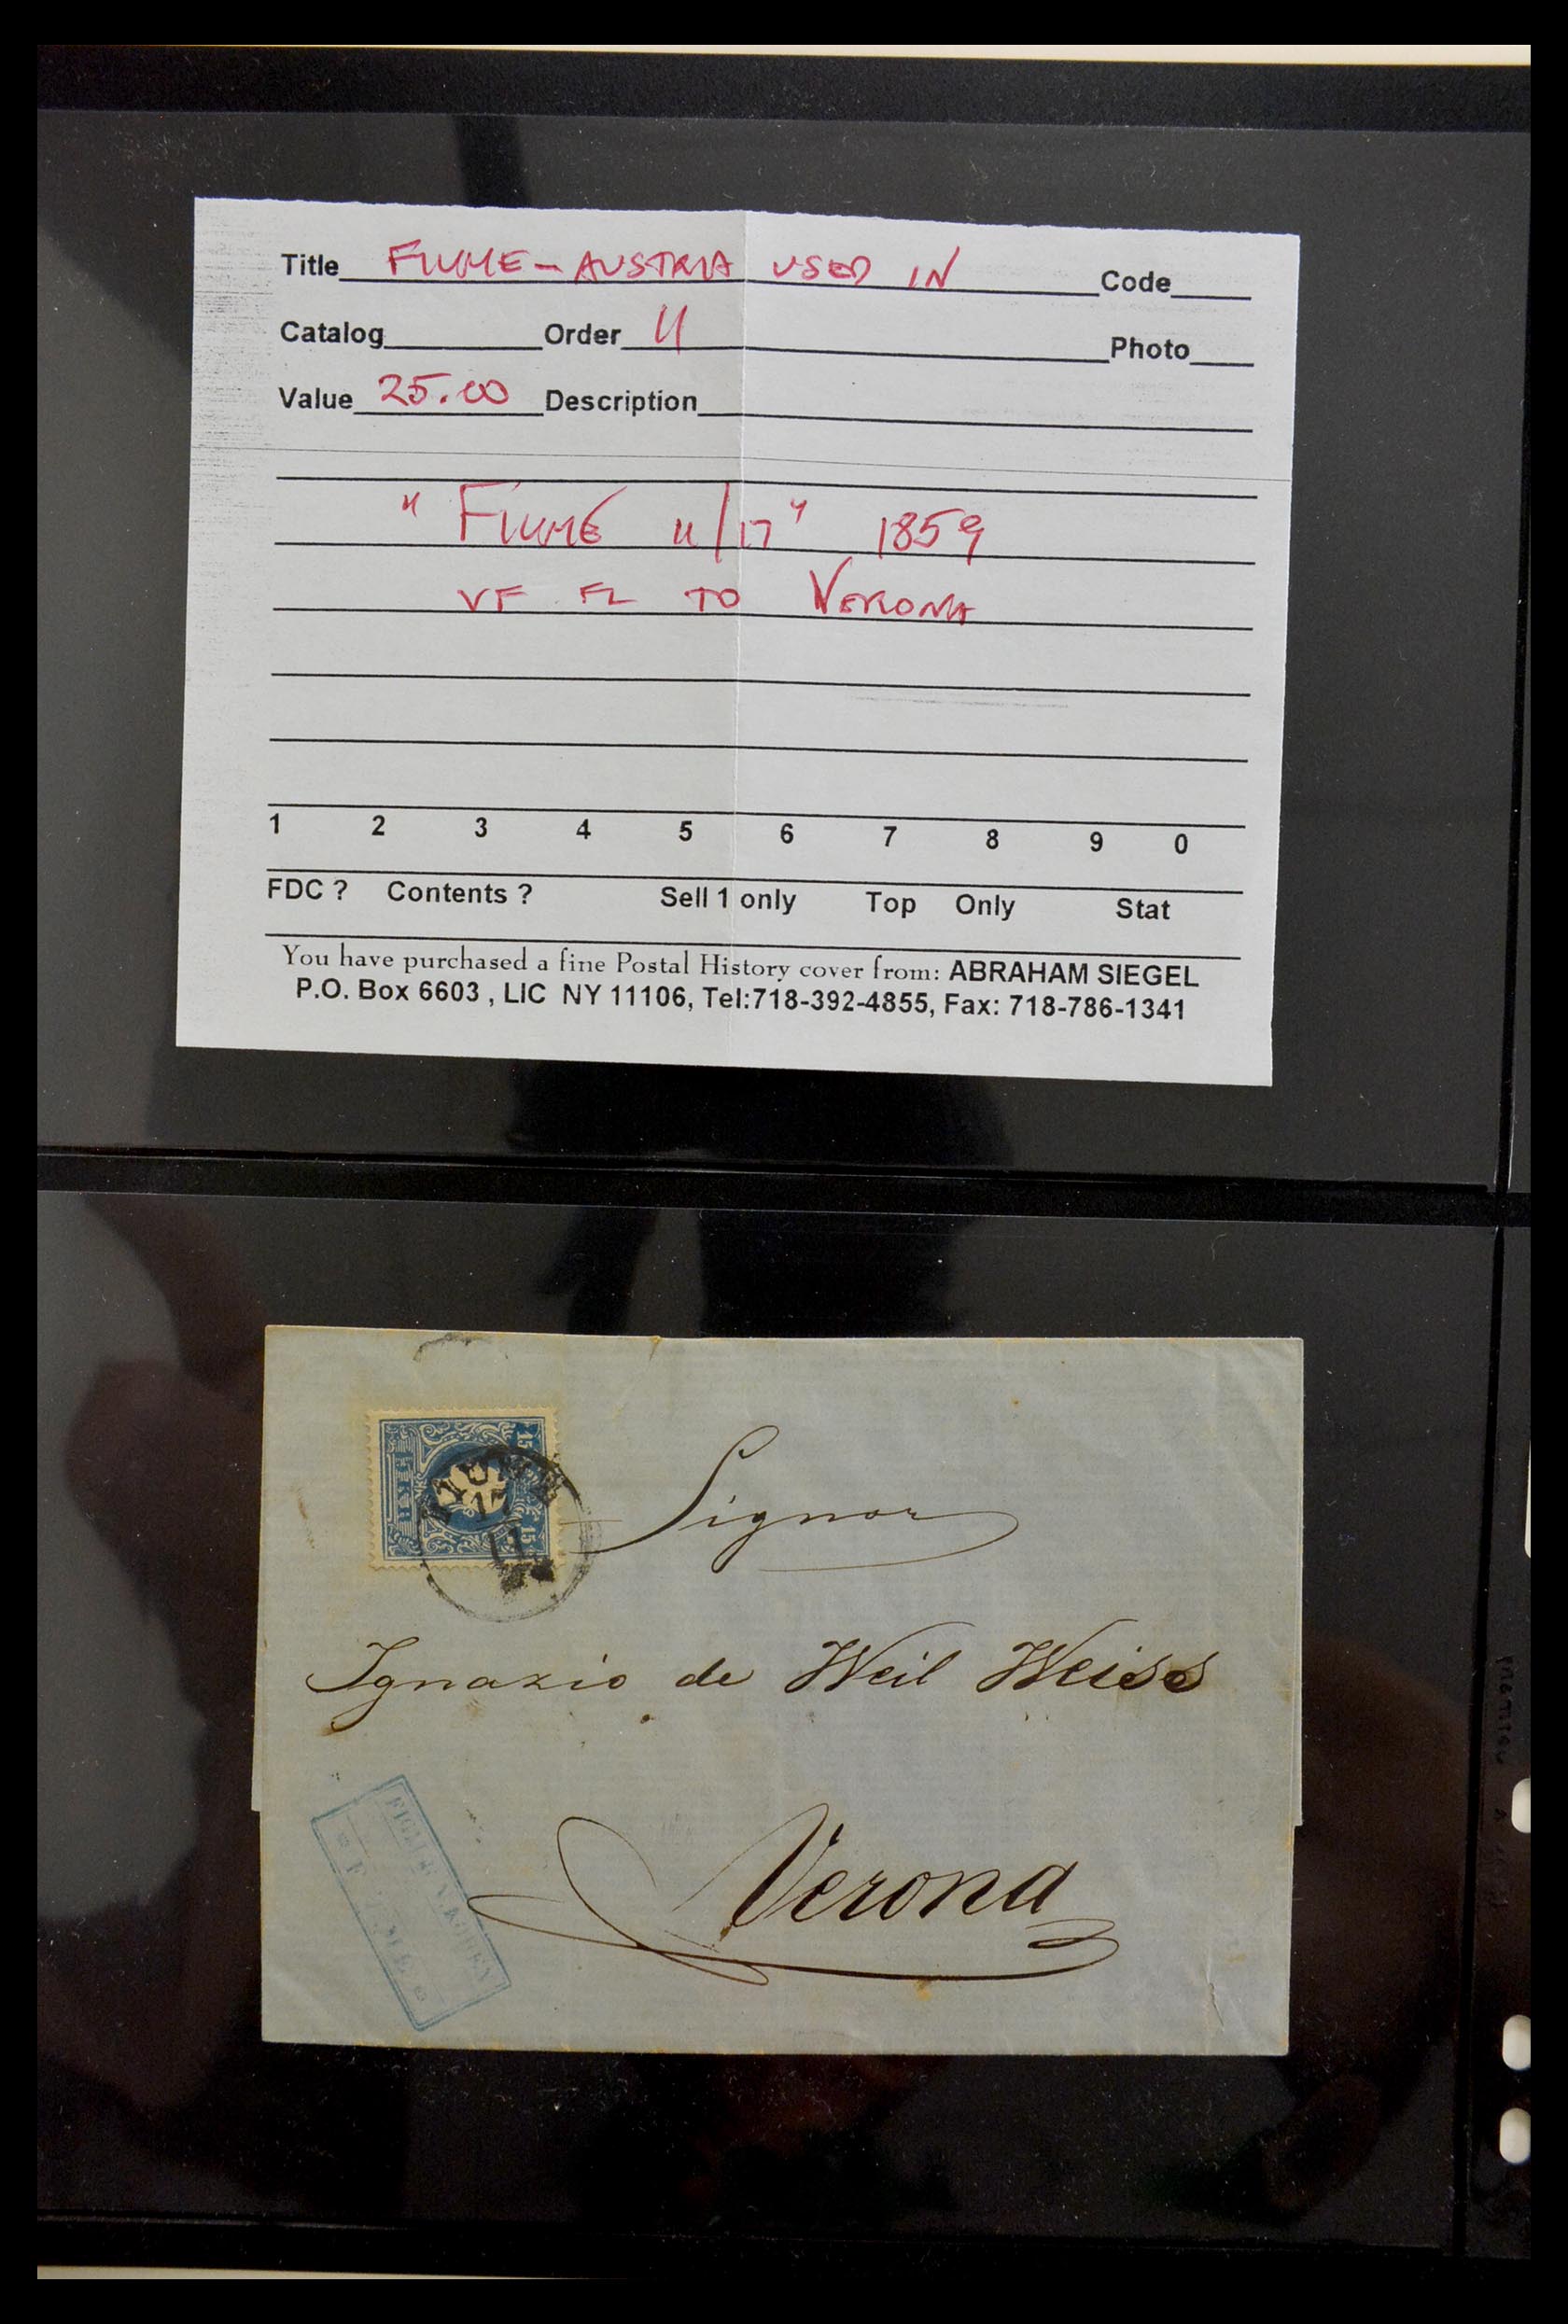 Title FIUME - AUSTRIA USED IN Code
Catalog Order 11 Photo
Value 25.00 Description
"FIUME 11/17" 1859
VF FL TO VERONA
1 2 3 4 5 6 7 8 9 0
FDC ? Contents ? Sell 1 only Top Only Stat
You have purchased a fine Postal History cover from: ABRAHAM SIEGEL
P.O. Box 6603 , LIC NY 11106, Tel:718-392-4855, Fax: 718-786-1341
15
15
FIUME
17
11
Signor
Ignazio de Weil Weiss
Verona
FIUME